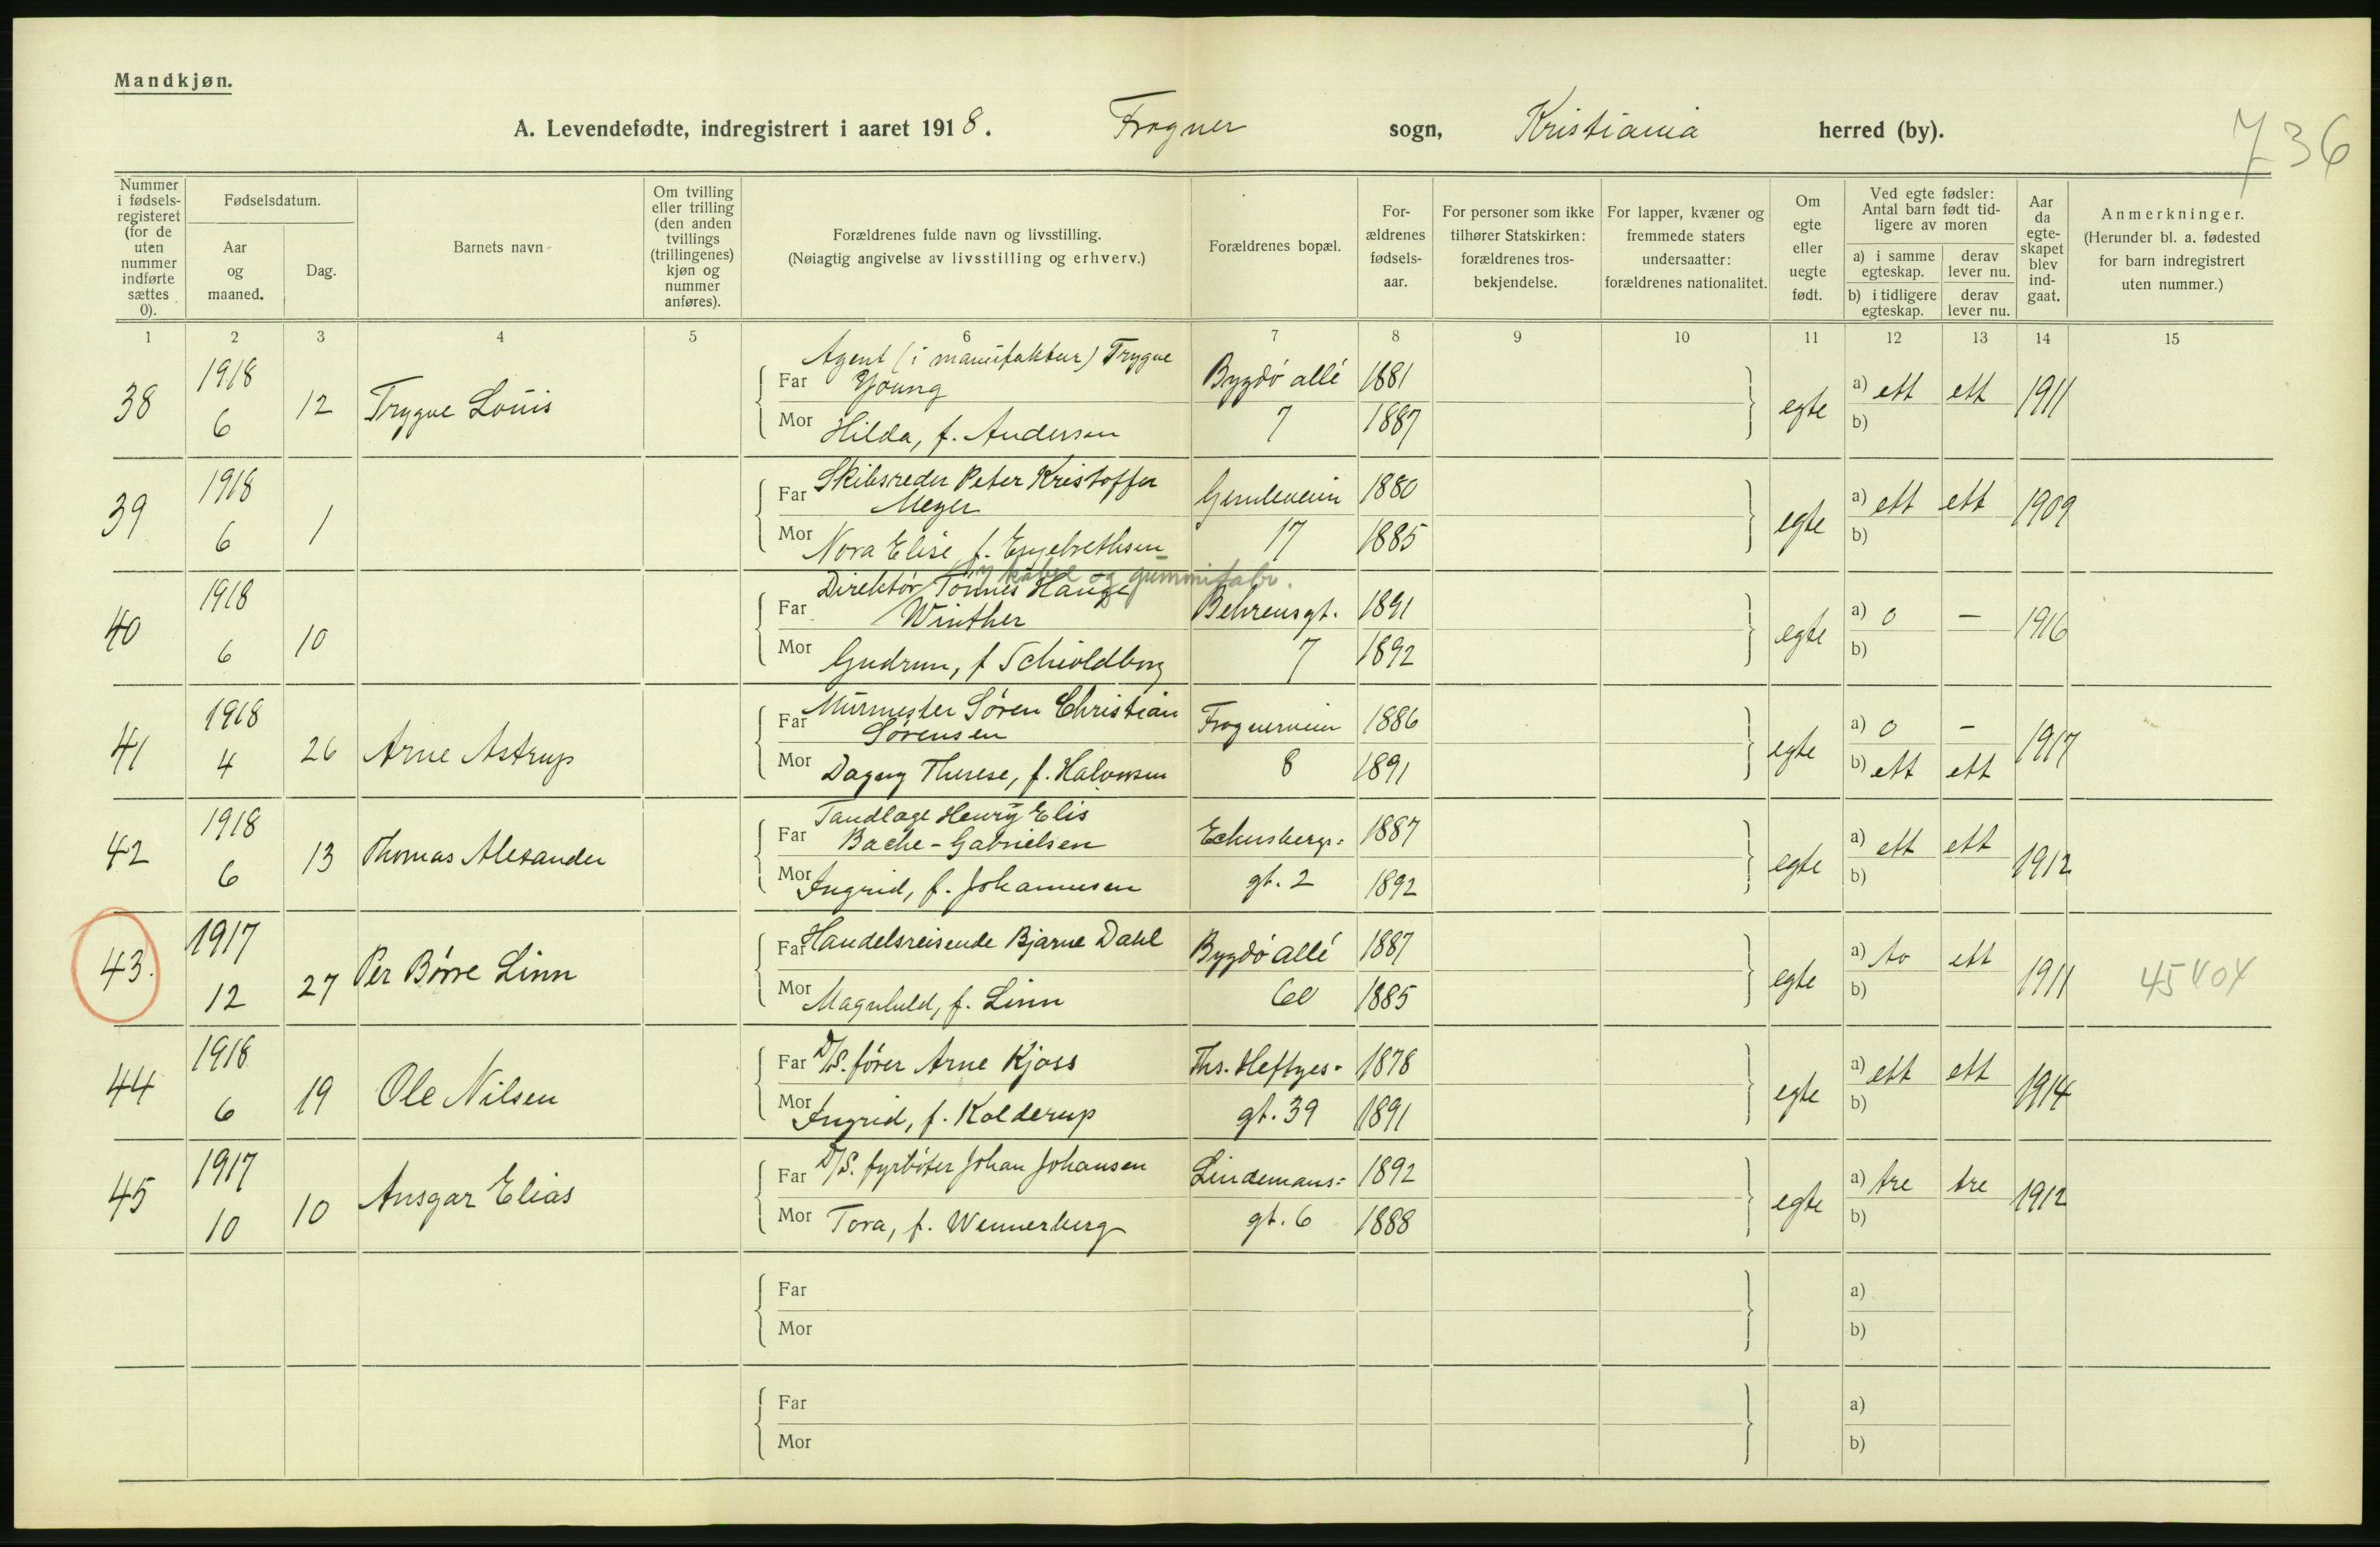 Mandkjøn.
A. Levendefødte, indregistrert i aaret 1918. Frogner sogn, Kristiania herred (by).
736
Nummer i fødsels-registeret (for de uten nummer indførte sættes 0).
Fødselsdatum.
Aar og maaned.
Dag.
Barnets navn
Om tvilling eller trilling (den anden tvillings (trillingenes) kjøn og nummer anføres).
Forældrenes fulde navn og livsstilling.
(Nøiagtig angivelse av livsstilling og erhverv.)
Forældrenes bopæl.
For-ældrenes fødsels-aar.
For personer som ikke tilhører Statskirken: forældrenes tros-bekjendelse.
For lapper, kvæner og fremmede staters undersaatter: forældrenes nationalitet.
Om egte eller uegte født.
Ved egte fødsler: Antal barn født tid-ligere av moren
a) i samme egteskap.
derav lever nu.
b) i tidligere egteskap.
derav lever nu.
Aar da egte-skapet blev ind-gaat.
Anmerkninger.
(Herunder bl. a. fødested for barn indregistrert uten nummer.)
1 2 3 4 5 6 7 8 9 10 11 12 13 14 15
Agent (i manufaktur) Trygve
38 1918 6 12 Trygve Louis Far Young Bygdø allé 1881 egte a) ett ett 1911
Mor Hilda, f. Andersen 7 1887 b)
Skibsreder Peter Kristoffer
39 1918 6 1 Far Meyer 1880 egte a) ett ett 1909
Mor Nora Elise f. Engebrethsen 17 1885 b)
kabel og gummifabr.
Direktør Tønnes Hauge
40 1918 6 10 Far Winther Behrensgt. 1891 egte a) 0 — 1916
Mor Gudrun, f Schioldborg 7 1892 b)
Murmester Søren Christian
41 1918 4 26 Arne Astrup Far Sørensen Frognerveien 1886 egte a) 0 - 1917
Mor Dagny Therese, f. Halvorsen 8 1891 b) ett ett
Tandlæge Henry Elis
42 1918 6 13 Thomas Alexander Far Bache-Gabrielsen Eckersbergs= 1887 egte a) ett ett 1912
Mor Ingrid, f. Johannesen gt. 2 1892 b)
43. 1917 12 27 Per Börre Linn Far Handelsreisende Bjarne Dahl Bygdø allé 1887 egte a) to ett 1911
Mor Magnhild, f. Linn 60 1885 b)
44 1918 6 19 Ole Nilsen Far D/S. fører Arne Kjøss Ths. Heftyes= 1878 egte a) ett ett 1914
Mor Ingrid, f. Kolderup gt. 39 1891 b)
45 1917 10 10 Ansgar Elias Far D/S. fyrbøter Johan Johansen Lindemans= 1892 egte a) tre tre 1912
Mor Tora, f. Wennerberg gt. 6 1888 b)
Far a)
Mor b)
Far a)
Mor b)